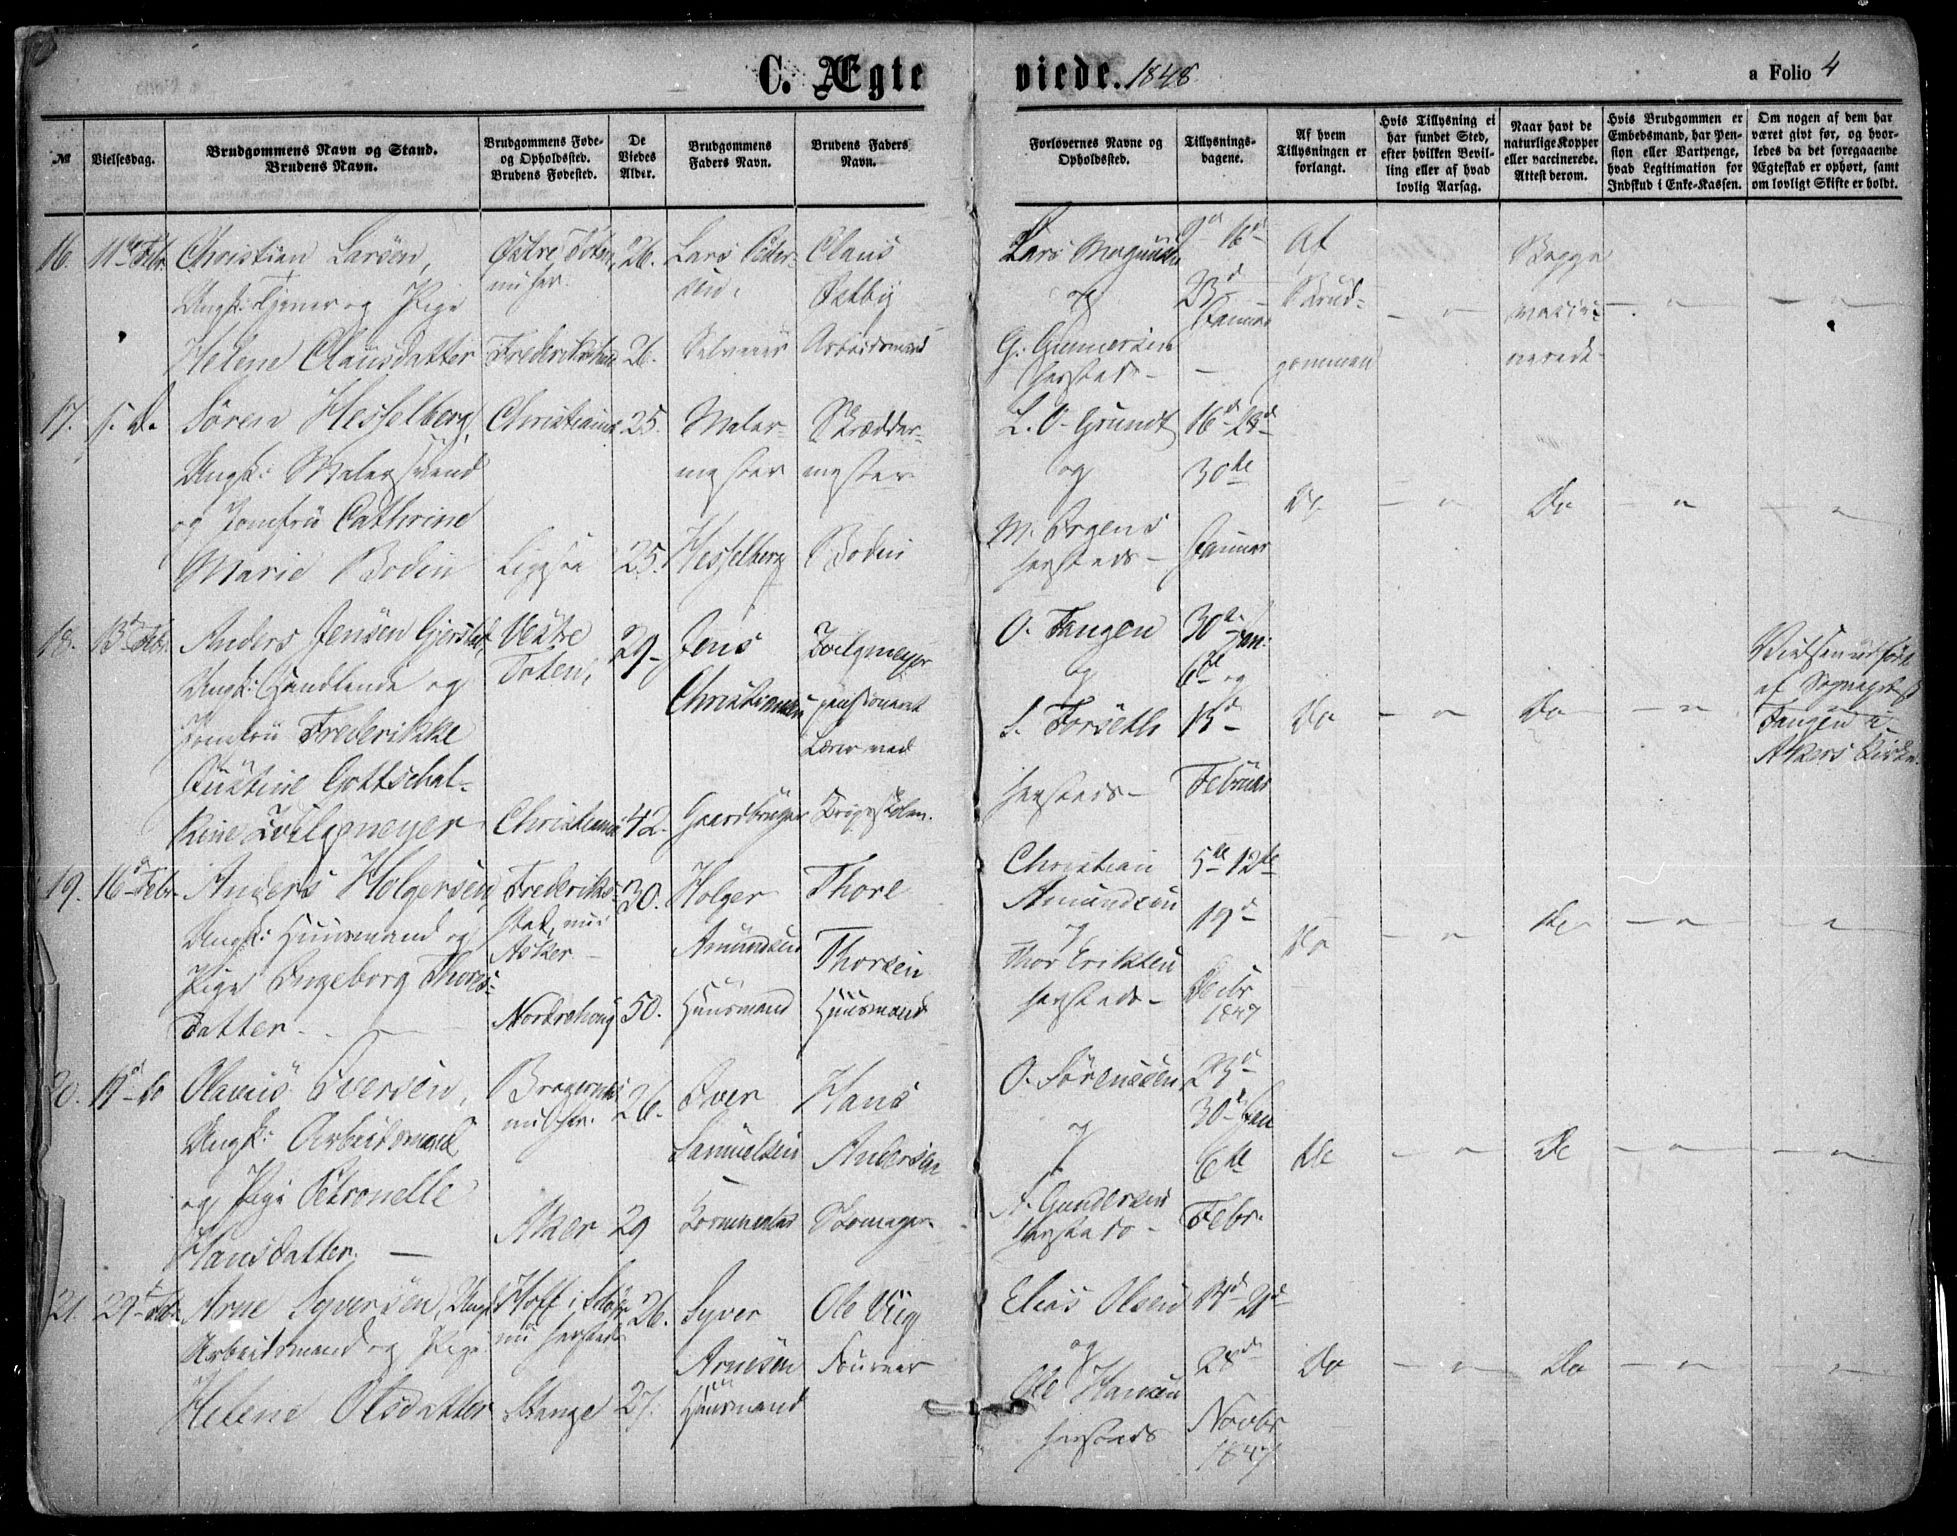 C. Ægteviede. 1848.
a Folio 4
№
Vielsesdag.
Brudgommens Navn og Stand.
Brudens Navn.
Brudgommens Føde-
og Opholdssted.
Brudens Fødested.
De
Viedes
Alder.
Brudgommens
Faders Navn.
Brudens Faders
Navn.
Forlovernes Navne og
Opholdssted.
Tillysnings-
dagene.
Af hvem
Tillysningen er
forlangt.
Hvis Tillysning ei
har fundet Sted,
efter hvilken Bevil-
ling eller af hvad
lovlig Aarsag.
Naar havt de
naturlige Kopper
eller vaccinerede.
Attest derom.
Hvis Brudgommen er
Embedsmand, har Pen-
sion eller Vartpenge,
hvad Legitimation for
Indskud i Enke-Kassen.
Om nogen af dem har
været givt før, og hvor-
ledes da det foregaaende
Ægteskab er ophørt, samt
om lovligt Skifte er holdt.
16.
11te Febr.
Christian Larsen,
Ungk: Tjener og Pige
Helene Clausdatter
Østre Toten,
nu her.
26.
26.
Lars Peder-
sen,
Selveier
Claus
Arbeidsmand
Lars Magnusen
og
G. Gunnersen
hersteds
9de 16de
23de
Januar
Af
Brud-
gommen
Begge
vacci-
nerede
17.
Søren Hesselberg,
Ungk: Malersvend
og Jomfru Cathrine
Marie Bodin
Christiania
25.
25.
Maler-
mester
Hesselberg
Skrædder-
mester
Bodin
L. O. Grundt
og
hersteds
16de 23de
30te
Januar
Do
Do
18.
13de Febr.
Anders Jensen
Ungk: Handlende og
Jomfru Frederikke
Justine Gottschal-
kine
Vestre
Toten,
Christiania
29
42.
Jens
Christiansen
Gaardbruger
pensioneret
Lærer ved
Krigsskolen.
O. Tangen
og
S. Forseth
hersteds
30te Jan:
6te og
13de
Februar
Do
Do
Vielsen udført
af Sognepræst
Tangen i
Akers Kirke.
19.
16de Febr.
Anders Holgersen,
Ungk: Huusmand og
Pige Ingeborg Thores-
datter
Frederiks-
stad, nu i
Asker
Norderhoug
30.
50.
Holger
Amundsen
Huusmand
Thore
Thorsen
Huusmand
Christian
Amundsen
og
Thor Eriksen
hersteds
5te 12te
19de
Decbr
1847
Do
Do
20.
19de do
Olaus Iversen,
Ungk: Arbeidsmand
og Pige Petronelle
Hansdatter.
Bragernes
nu her.
Aker
26.
29
Iver
Samuelsen
Hans
Andersen
Skomager
O. Sørenssen
og
A. Gundersen
hersteds
23de
30te Jan
6te
Febr.
Do
Do
21.
29de Febr.
Arne Syversen, Ungk:
Arbeidsmand og Pige
Helene Olsdatter
nu hersteds
Stange
26.
27.
Syver
Arnesen
Huusmand
Ole Viig
Elias Olsen
og
Ole Hansen
hersteds
14de 21de
28de
Novbr
1847
Do
Do